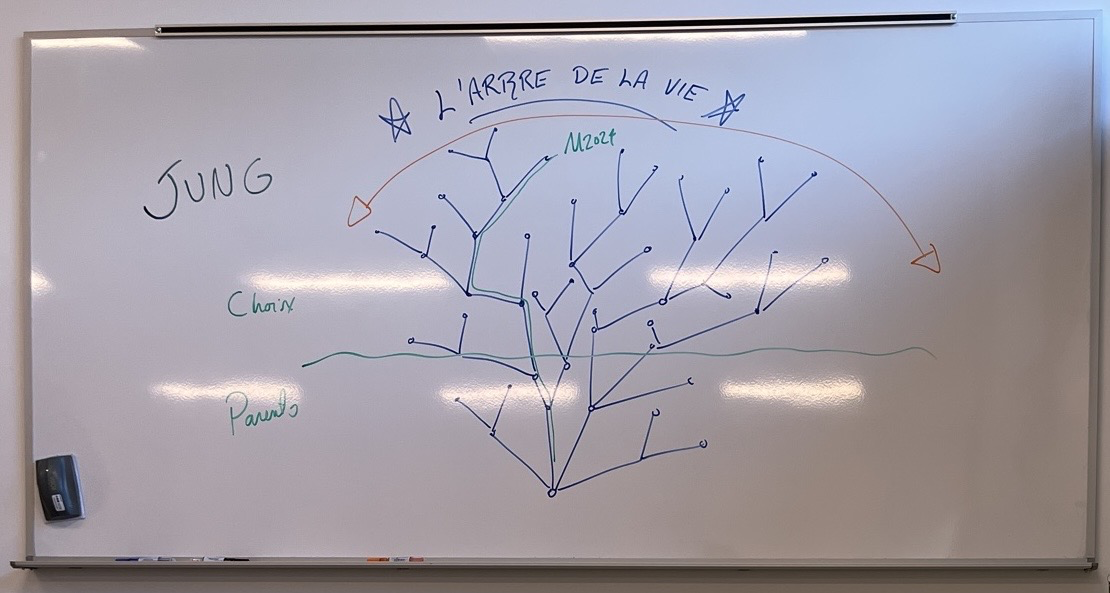 L'ARBRE DE LA VIE
JUNG
M2024
Choix
Parents